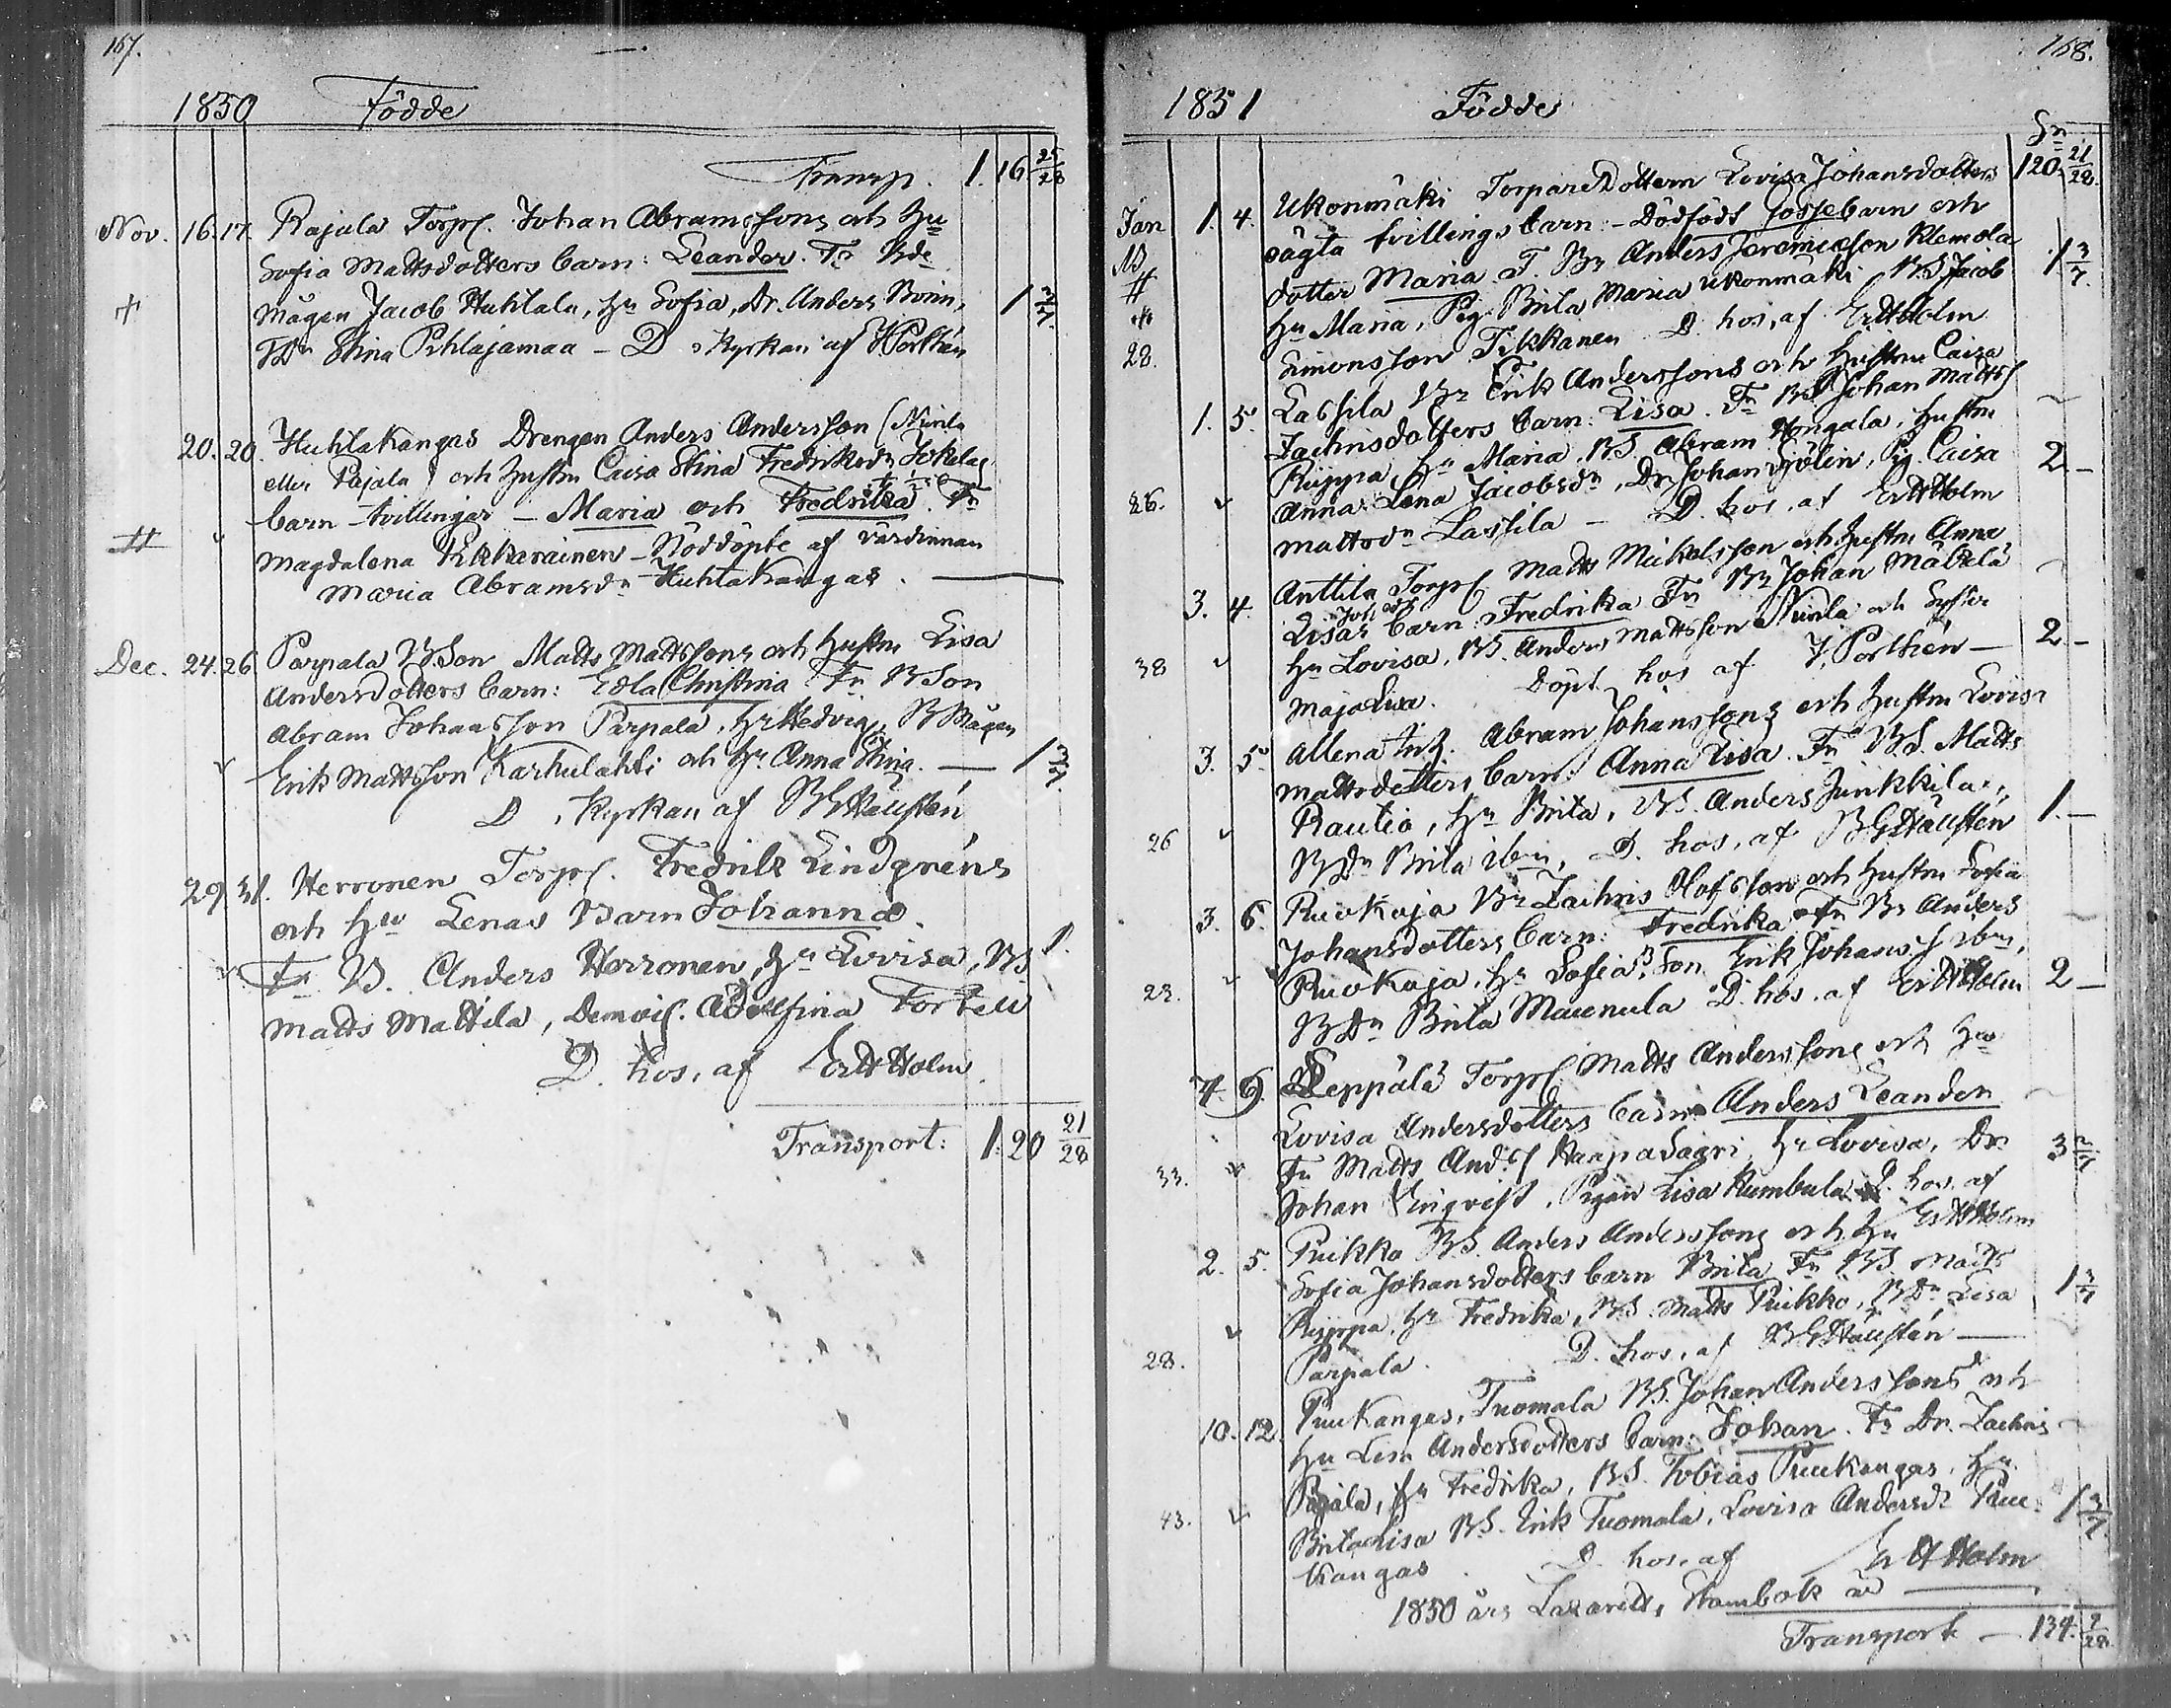 167.
1850 Födde
Transp. 1. 16 25/28
Nov. 16. 17. Rajala Torp. Johan Abramssons och Hu
Sofia Mattsdotters barn: Leander. Fr Bde
mågen Jacob Huhtala, Hu Sofia, Dr. Anders
TDr Stina Pihlajamaa – D. i Kyrkan af Porthén 1 3/7.
20. 20. Huhtakangas Drengen Anders Andersson (Niinla
eller Pajala) och hustru Caisa Stina Fredriksdr Jokelas
barn – tvillingar – Maria och Fredrika. Fr
Magdalena Ekkerainen – Nöddöpte af värdinnan
Maria Abramsdr Huhtakangas.
Dec. 24. 26 Parpala BSon Matts Mattssons och hustru Lisa
Andersdotters barn: Edla Christina Fr BSon
Abram Johansson Parpala, Hu Hedvig, BMågen
Erik Mattsson Karhulahti och Hu Anna Stina. — 1 3/7.
D. i Kyrkan af
29 31. Herronen Torp. Fredrik Lindgréns
och Hu Lenas Barn Johanna.
Fr B. Anders Herronen, Hu Lovisa, BS 1.
Matts Mattila, Demois. Adolfina Fortell
D. hos, af Holm
Transport: 1. 20 21/28
168.
1851 Födde
120. 21/28.
Jan 1. 4. Ukonmäki TorpareDottern Lovisa Johansdotters
oägta tvillings barn: – Dödfödt gossebarn och
dotter Maria. F. Br Anders Jeremiasson Klemola 1 3/7.
Hu Maria, Pig. Brita Maria Ukonmäki BS Jacob
28. Simonsson Tikkanen D. hos, af Holm
1. 5. Lassila Br Erik Anderssons och hustru Caisa
Zachrisdotters barn: Lisa. Fr BS Johan Matts
Hu Maria, BS Abram Hongala, hustru
26. Anna Lena Jacobsdr, Dr Johan Sjölin, Pig. Caisa 2 –
Mattsdr Lassila – D. hos, af Holm
3. 4. Anttila Torp Matts Michelsson och hustru Anna
Lisas Joh dr barn: Fredrika Fr Br Johan Mäkelä
38 Hu Lovisa, BS. Anders Mattsson Niinla och Syster 2 –
Maja Lisa. Döpt hos af J. Porthén –
3. 5. Allena Inh. Abram Johanssons och hustru Lovisa
Mattsdotters barn: Anna Lisa. Fr BS. Matts
26 Rautio, Hu Brita, BS. Anders Junkkila, 1. –
BDr Brita ibm, D. hos, af
3. 6. Ruokoja Br Zachris Olofsson och hustru Sofia
Johansdotters barn: Fredrika. Fr Br Anders
Ruokoja, Hu Sofia, BSon Erik Johans ibm, 2 –
BDr Brita Maunula D. hos. af Holm
4. 6. Leppälä Torp Matts Anderssons och Hu
Lovisa Andersdotters barn: Anders Leander
33. Fr Matts And. Haapasaari, Hu Lovisa, Dr 3 2/7
Johan Enqvist, Pigan Lisa Kumbula D. hos. af
Holm
2. 5. Puikko BS. Anders Anderssons och Hu
Sofia Johansdotters barn Brita Fr BS Matts
Hu Fredrika, BS. Matts Puikko, BDr Lisa 1 3/7
28. Parpala. D. hos, af
10. 12. Puukangas, Tuomala BS. Johan Anderssons och
Hu Lisa Andersdotters barn: Johan. Fr Dr. Zachris
Pajala, Hu Fredrika, BS. Tobias Puukangas, Hu
43. Brita Lisa BS. Erik Tuomala, Lovisa Andersdr Puu- 1 3/7
kangas D. hos, af Holm
1850 års Lazaretts, Stambok
Transport – 134. 7/28.